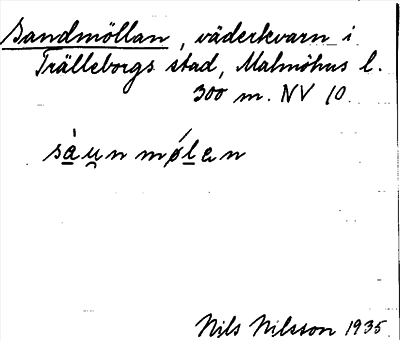 Sandmöllan, väderkvarn i
Trälleborgs stad, Malmöhus l.
300 m. NV 10
såu̯n mølen
Nils Nilsson 1935